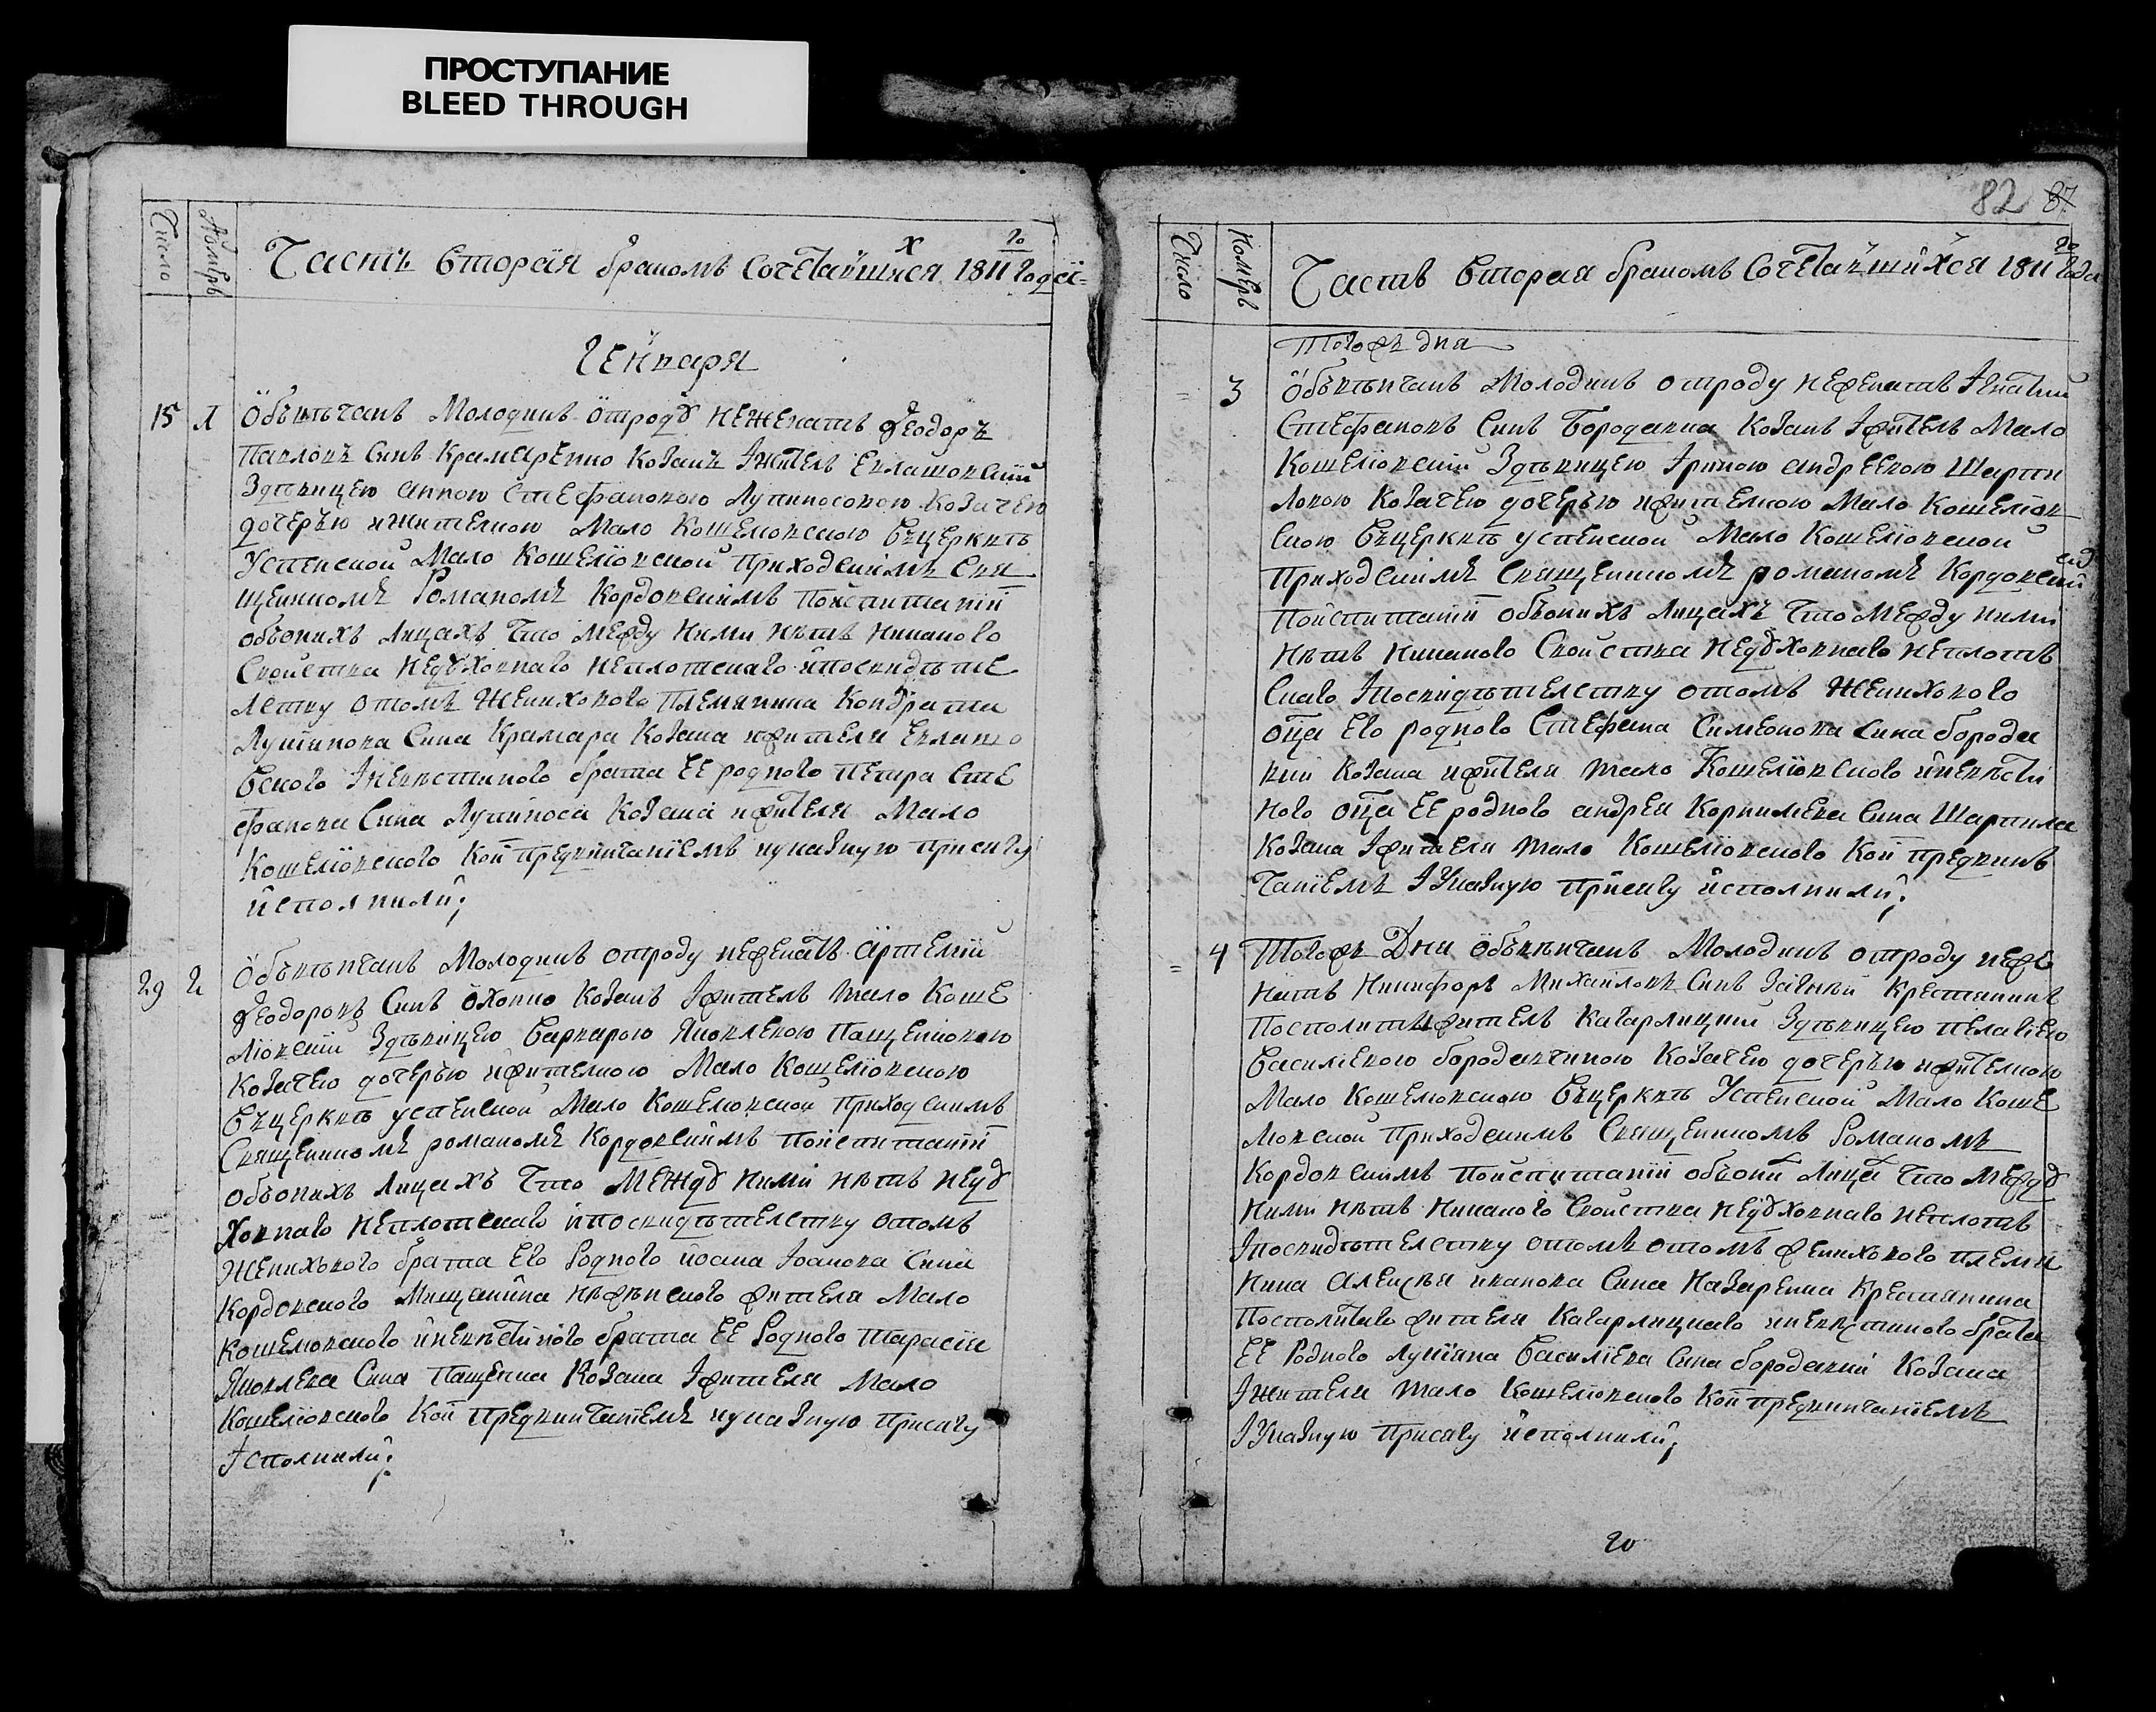 ПРОСТУПАНИЕ
BLEED THROUGH
Число
Номеръ
Часть вторая бракомъ сочетавшихся 1811го года
Генваря
15 1 Обвѣнчанъ молодикъ отроду неженатъ Феодоръ
Павловъ синъ Крамаренко козакъ іжитель Еклашовский
Здѣвицею Анною Стефановою Лупиносовою козачею
дочерью ижителкою Мало Кошелювскою Въцерквѣ
Успенской Мало Кошеліовской приходскимъ свя
щенникомъ Романомъ Кордовскимъ поиспитанїи
обѣоихъ лицахъ что между ними нѣтъ никаково
своиства недуховнаго неплотскаго ипосвидѣте
лству отомъ женихового племяника Кондрата
Лукинова сина Крамара козака ижителя Еклашо
вского іневѣстиного брата ее родного Петра Сте
фанова сина Лупиноса козака ижителя Мало
Кошеліовского кои предвинчаніемъ иуказную присягу
исполнили;
29 2 Обвѣнчанъ молодикъ отроду неженатъ Артемїи
Феодоровъ синъ Охонко козакъ іжитель Мало Коше
ліовскїи Здѣвицею Варварою Яковлевою Пащенковою
козачею дочерью ижителкою Мало Кошеліовскою
Въцерквѣ успенской Мало Кошеловской приходскимъ
Священникомъ романомъ Кордовскимъ поиспитанїи
обѣоихъ лицахъ что между ними нѣтъ неду
ховнаго неплотскаго ипосвидѣтелству отомъ
женихового брата его родного Иоана Іоанова сина
Кордовского мищанина нѣжинского жителя Мало
Кошеловского иневѣстиного брата ее родного Тарасїя
Яковлева сина Пащенка козака іжителя Мало
Кошеліовского кои предвинчаніемъ иуказную присягу
Ісполнили;
82 87
Число
Номеръ
Часть вторая бракомъ сочетавшихся 1811го года
Тогожъ дня
= 3 Обвѣнчанъ молодикъ отроду неженатъ Ігнатїи
Стефановъ синъ Бородавка козакъ іжитель Мало
Кошеліовскій Здѣвицею Іриною Андреевою Шарпи
ловою козачею дочерью ижителкою Мало Кошеліов
скою Въцерквѣ успенской Мало Кошеліовской
приходскимъ Священникомъ романомъ Кордовским
поиспитанїи обѣоихъ лицахъ что между ними
нѣтъ никаково своиства недуховнаго неплот
скаго іпосвидѣтелству отомъ женихового
отца его родного Стефана Симеонова сина борода
вки козака ижителя Мало Кошеліовского иневѣсти
ного отца ее родного андрея Корнилиева сина Шарпила
козака іжителя Мало Кошеліовского кои предвин
чаніемъ іуказную присягу исполнили;
= 4 Тогожъ Дня обвѣнчанъ молодикъ отроду неже
натъ Никифоръ Михаиловъ синъ крестянинъ
посполитъ житель Кагарлицкий Здѣвицею Пелагіею
Василіевою бородавкиною козачею дочерью ижителкою
Мало Кошеловскою Въцерквѣ Успенской Мало Коше
ловской приходскимъ Священникомъ Романомъ
Кордовскимъ поиспитанїи обѣоих лицах что между
ними нѣтъ никакого своиства недуховнаго неплотс
іпосвидѣтелству отомъ отомъ женихового племя
ника Алексѣя иванова сина Назаренка крестянина
посполитаго жителя Кагарлицкаго иневѣстиного брата
ее родного Лукїяна Василїева сина бородавки козака
іжителя Мало Кошеліовского кои предвинчаніемъ
іуказную присягу исполнили;
го